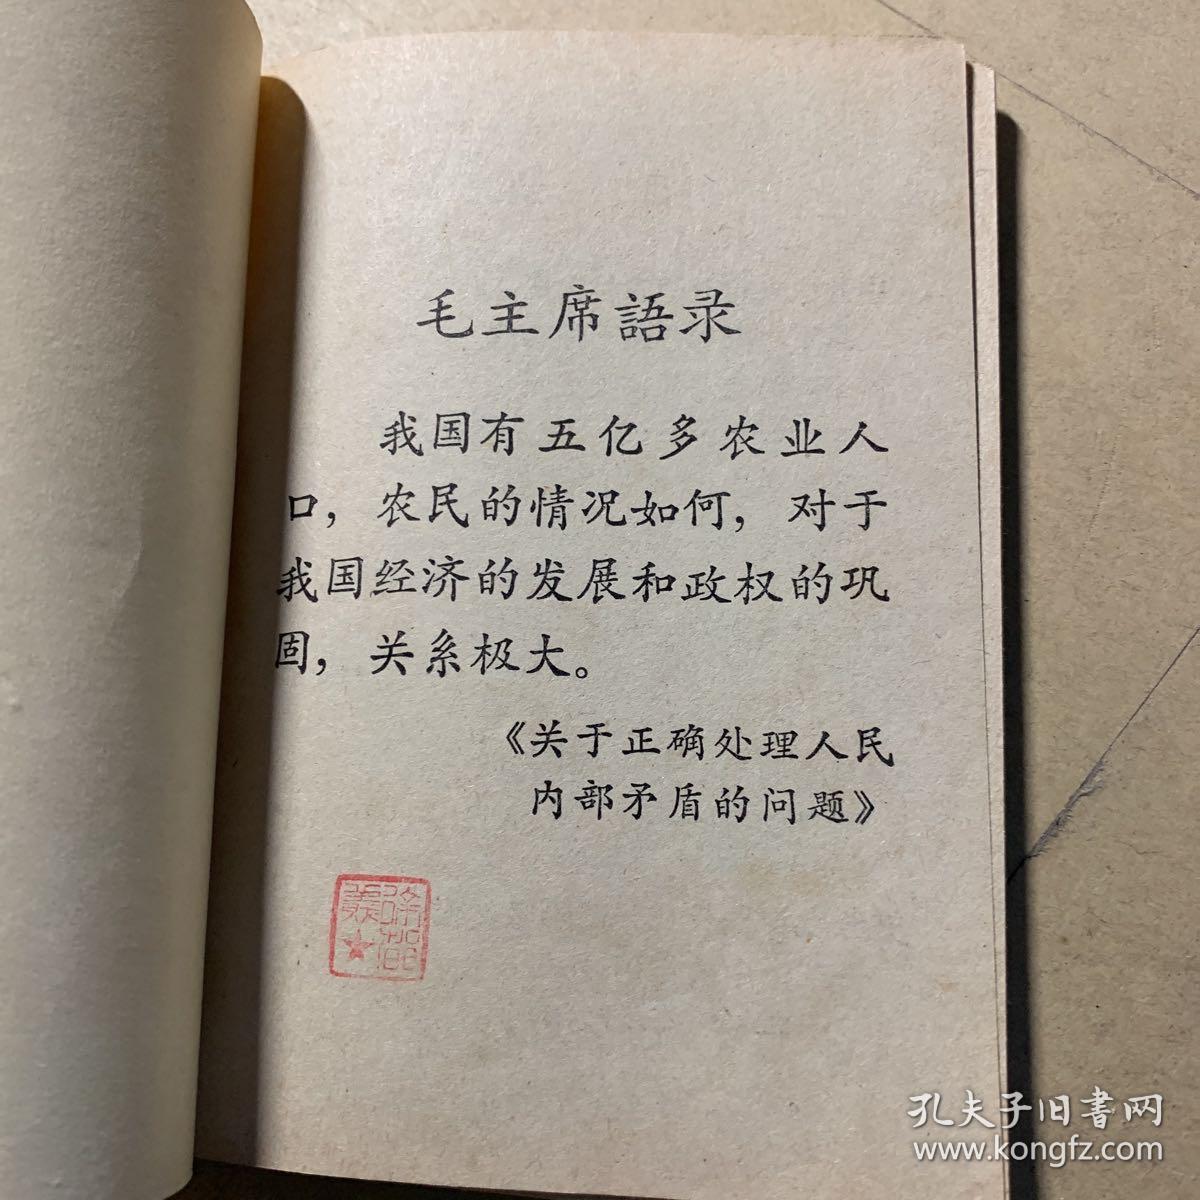 毛主席語录
我国有五亿多农业人
口，农民的情况如何，对于
我国经济的发展和政权的巩
固，关系极大。
《关于正确处理人民
内部矛盾的问题》
孔夫子旧書网
www.kongfz.com